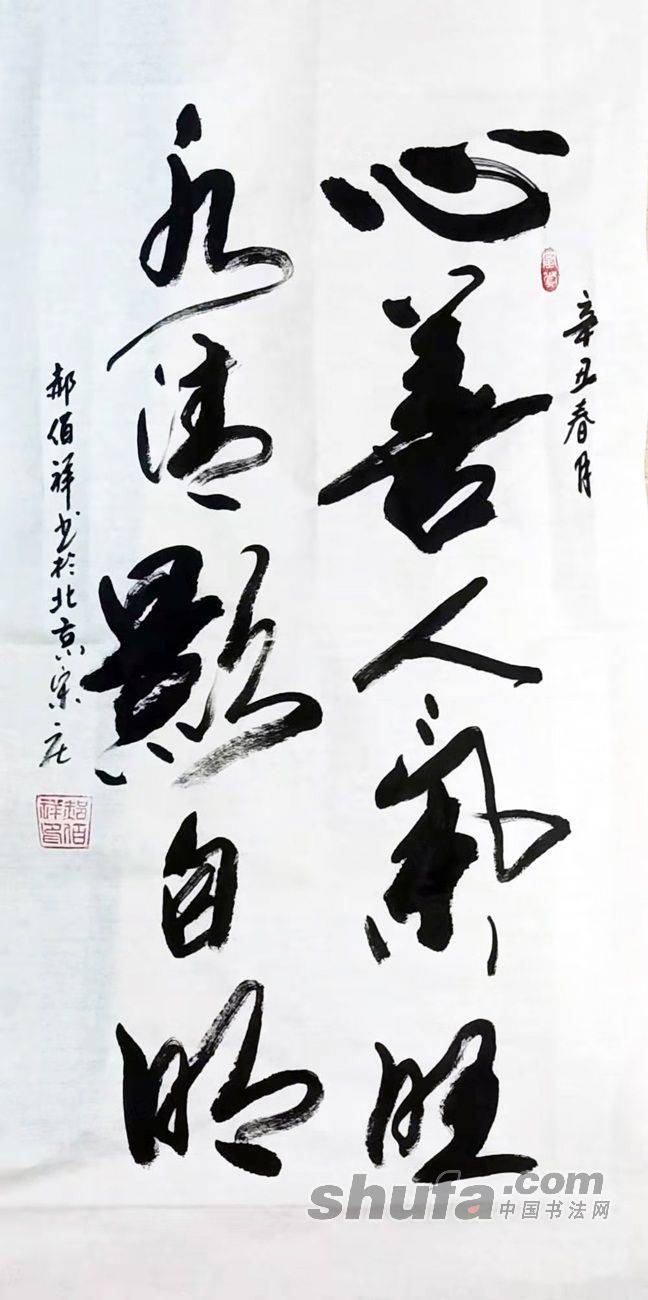 辛丑春月
心善人氣旺
水清顯自明
郝佰祥书於北京宋庄
郝佰祥印
shufa.com
中国书法网